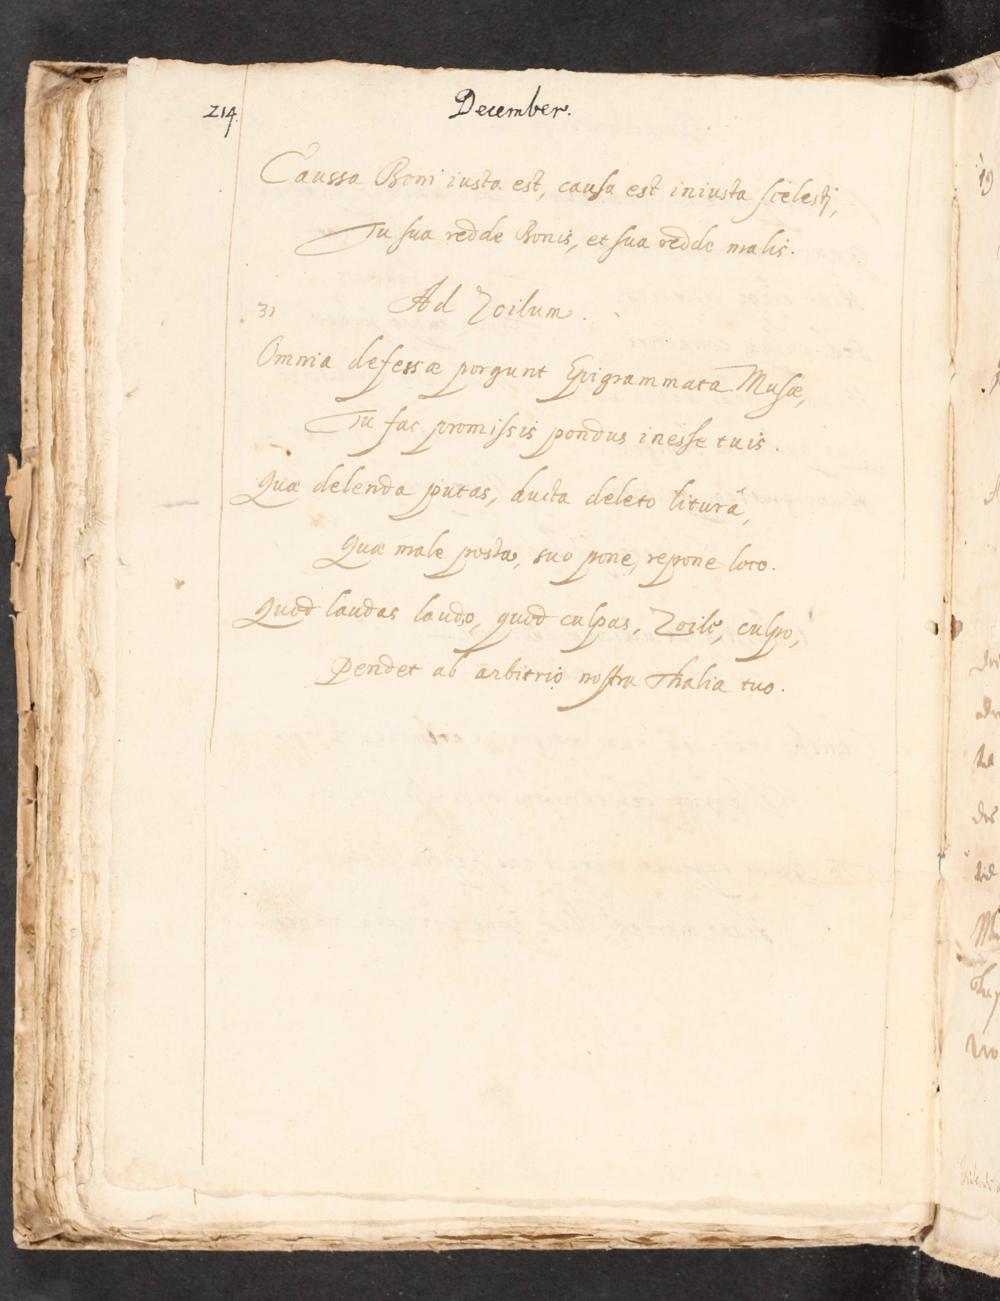 214
December.
Caussa Boni iusta est, causa est iniusta scelesti,
Tu sua redde Bonis, et sua redde malis.
31 Ad Zoilum.
Omnia defessæ porgunt Epigrammata Musæ,
Tu fac promissis pondus inesse tuis.
Quæ delenda putas, ducta deleto liturâ,
Quæ male posta, suo pone, repone loco.
Quod laudas laudo, quod culpas, Zoile, culpo,
Pendet ab arbitrio nostra Thalia tuo.